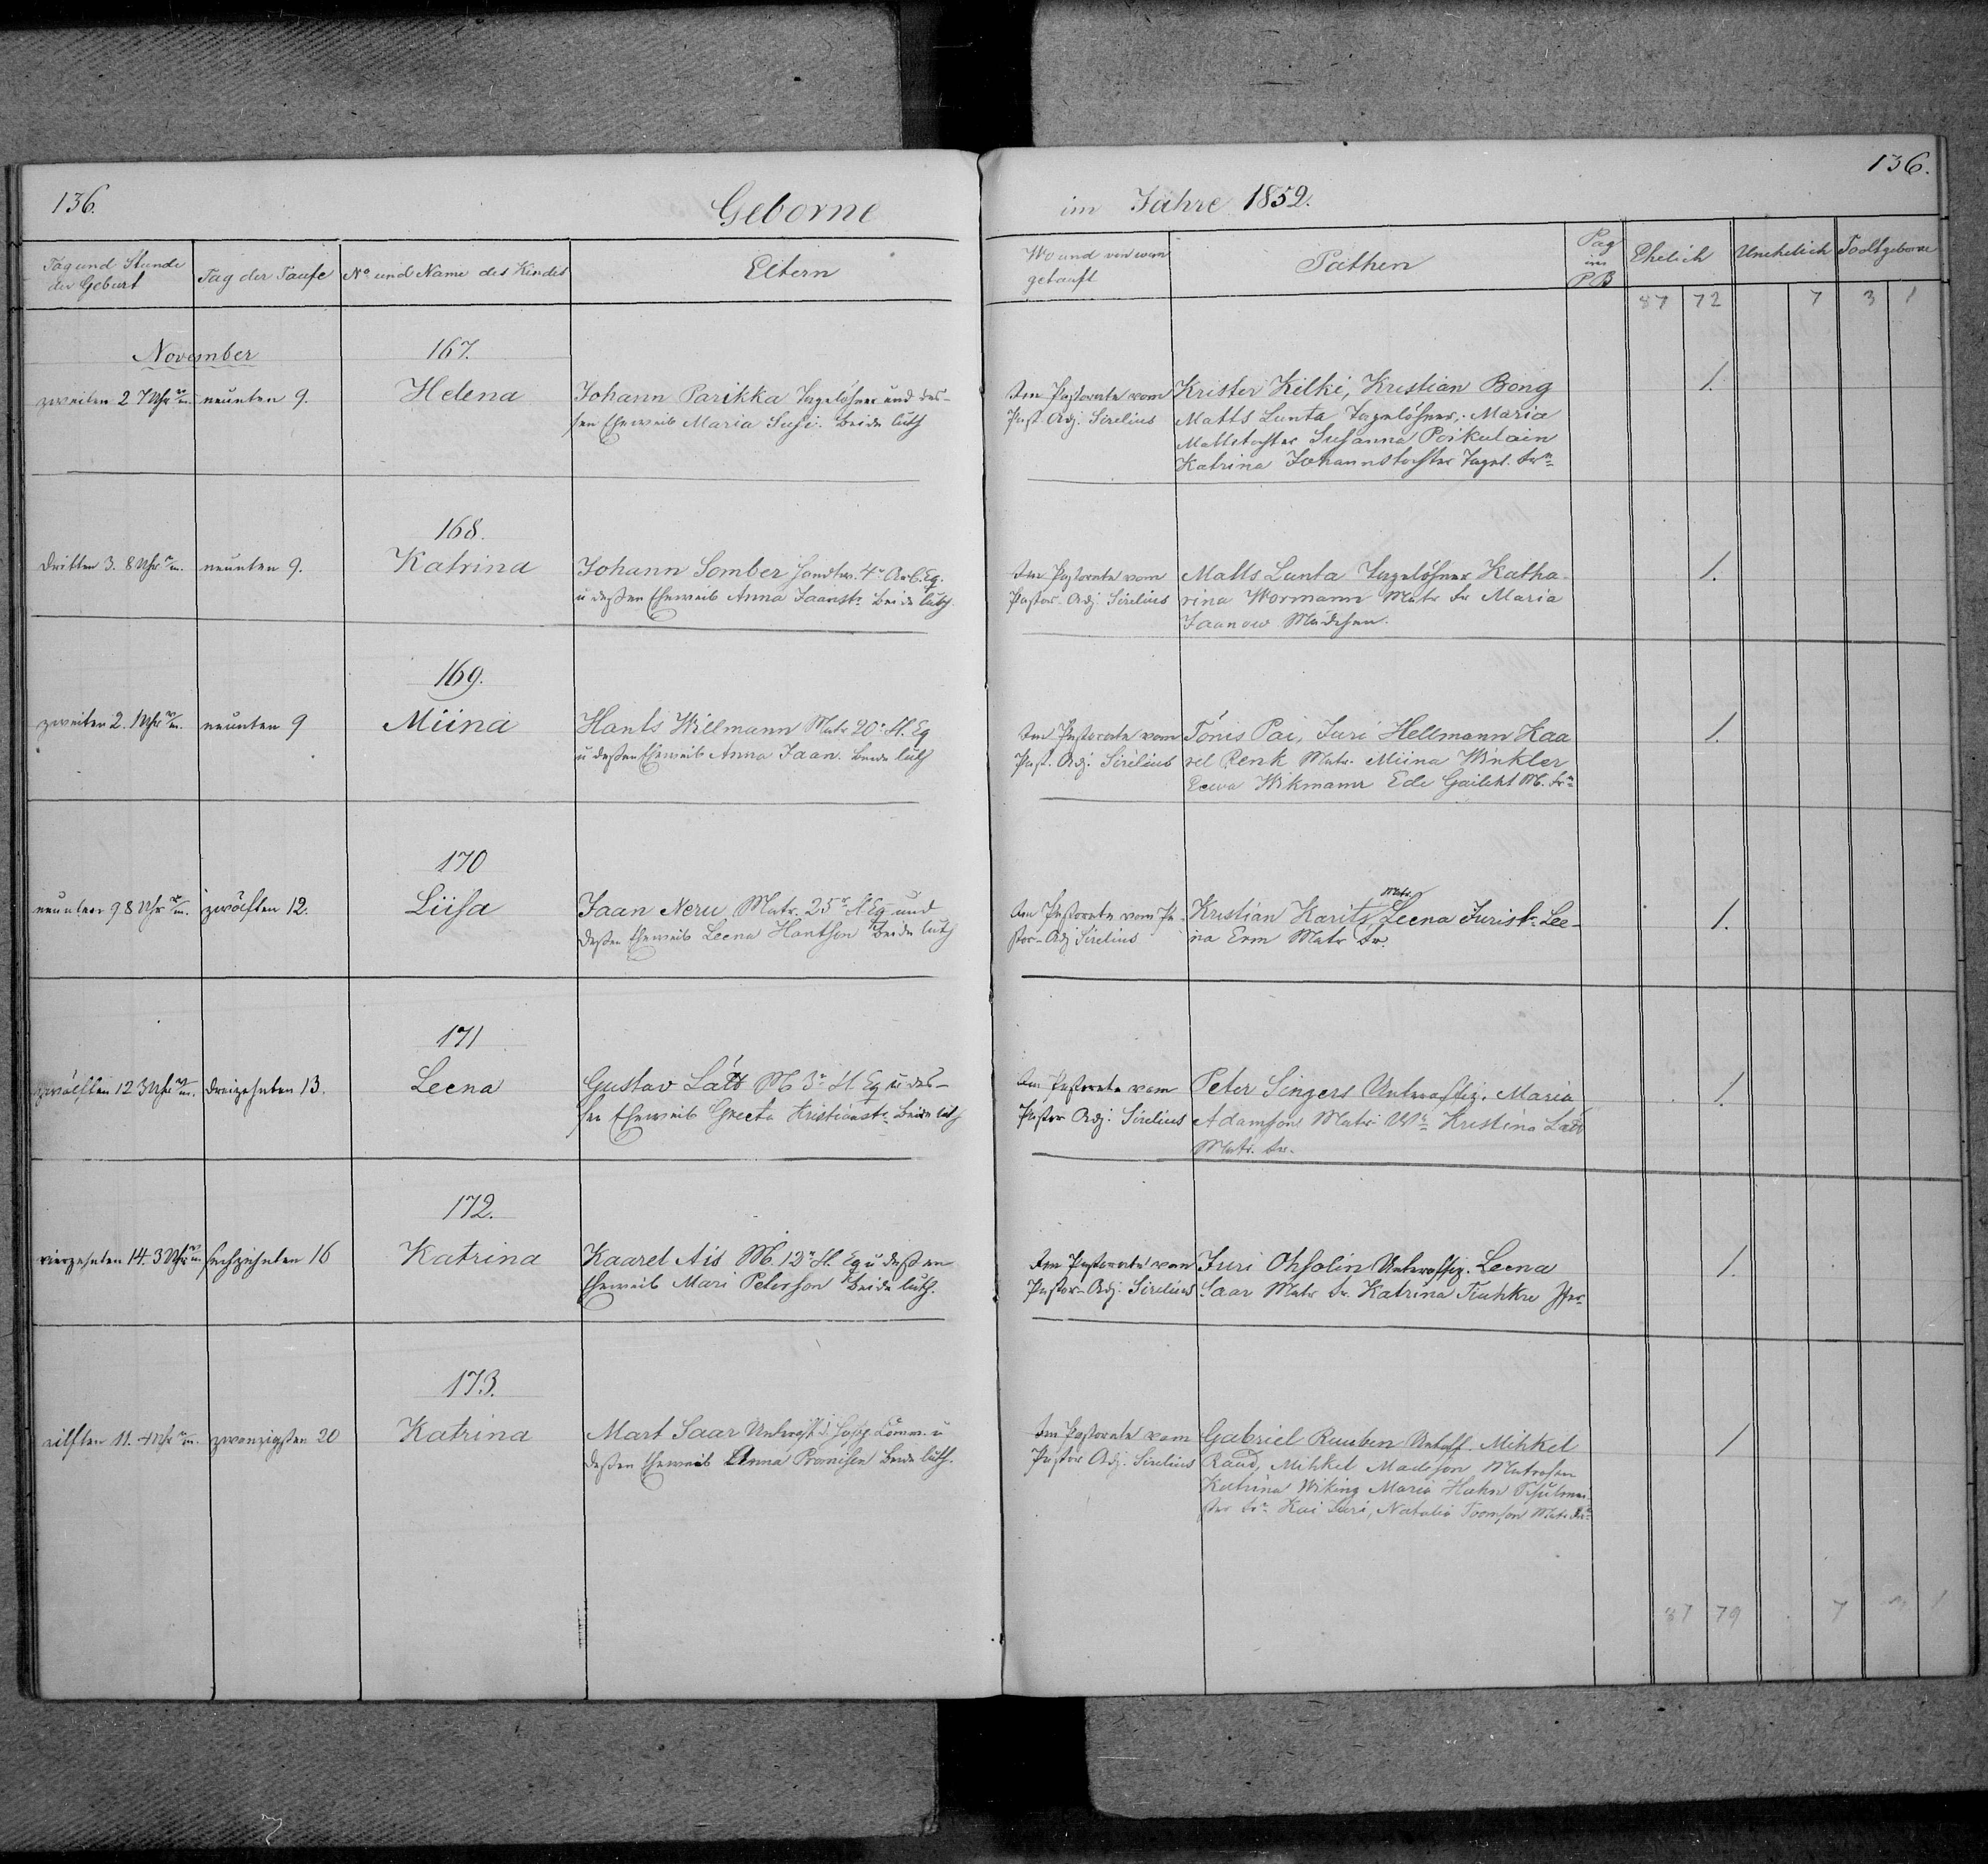 136.
Geborne
im Jahre 1852.
136.
Tag und Stunde der Geburt
Tag der Taufe
No und Name des Kindes
Eltern
Wo und von wem getauft
Pathen
Pag im PB
Ehelich
Unehelich
Todtgeborne
87 72 7 3 1
November
167.
zweiten 2 7 Uhr
neunten 9.
Helena
Johann Parikka Tagelöhner und des-
sen Eheweib Maria Susi. Beide luth
Im Pastorate vom
Past. Adj. Sirelius
Krister Kilki, Kristian Bong
Matts Lunta Tagelöhner, Maria
Mattstochter Susanna Poikulain
Katrina Johannstochter Tagel. Fr
1.
168.
dritten 3. 8 Uhr
neunten 9.
Katrina
Johann Somber Handw. 4r Arb. Eq.
u deßen Eheweib Anna Jaanst. Beide luth.
Im Pastorate vom
Pastor-Adj. Sirelius
Matts Lunta Tagelöhner Katha
rina Wormann Matr Fr Maria
Jaanow Mädchen.
1.
169.
zweiten 2. 1 Uhr
neunten 9
Miina
Hants Willmann Matr 20r fl. Eq
u deßen Eheweib Anna Jaan. Beide luth
Im Pastorate vom
Past. Adj. Sirelius
Tönis Pai, Juri Hellmann Kaa
rel Renk Matr. Miina Winkler
Eewa Wikmann Ede Gailekt M. Fr
1.
170
neunten 9 8 Uhr
zwölften 12.
Liisa
Jaan Neru, Matr. 25r fl Eq und
deßen Eheweib Leena Hantson Beide luth
Im Pastorate vom Pa
stor-Adj Sirelius
Kristian Karits Matr. Leena Jurist. Lee-
na Erm Matr Fr.
1.
171
zwölften 12 3 Uhr
dreizehnten 13.
Leena
Gustav Lätt M 3r fl Eq u des-
sen Eheweib Greeta Kristianst. Beide luth
Im Pastorate vom
Pastor Adj. Sirelius
Peter Singers Unteroffiz. Maria
Adamson Matr. Kristina Lätt
Matr. Fr.
1.
172.
vierzehnten 14. 3 Uhr
sechzehnten 16
Katrina
Kaarel Ais M. 12r fl. Eq u deßen
Eheweib Mari Peterson Beide luth.
Im Pastorate vom
Pastor-Adj. Sirelius
Juri Ohsolin Unteroffiz. Leena
Saar Matr Fr. Katrina
1.
173.
eilften 11. 4 Uhr
zwanzigsten 20
Katrina
Mart Saar Unteroff.
deßen Eheweib Anna Beide luth.
Im Pastorate vom
Pastor Adj. Sirelius
Gabriel Ruuben Untoff. Mihkel
Raud, Mihkel Madison Matrosen
Katrina Wiking Maria Hahn
Kai Suri, Natalia Toomson Matr Fr
1
87 79 7 1